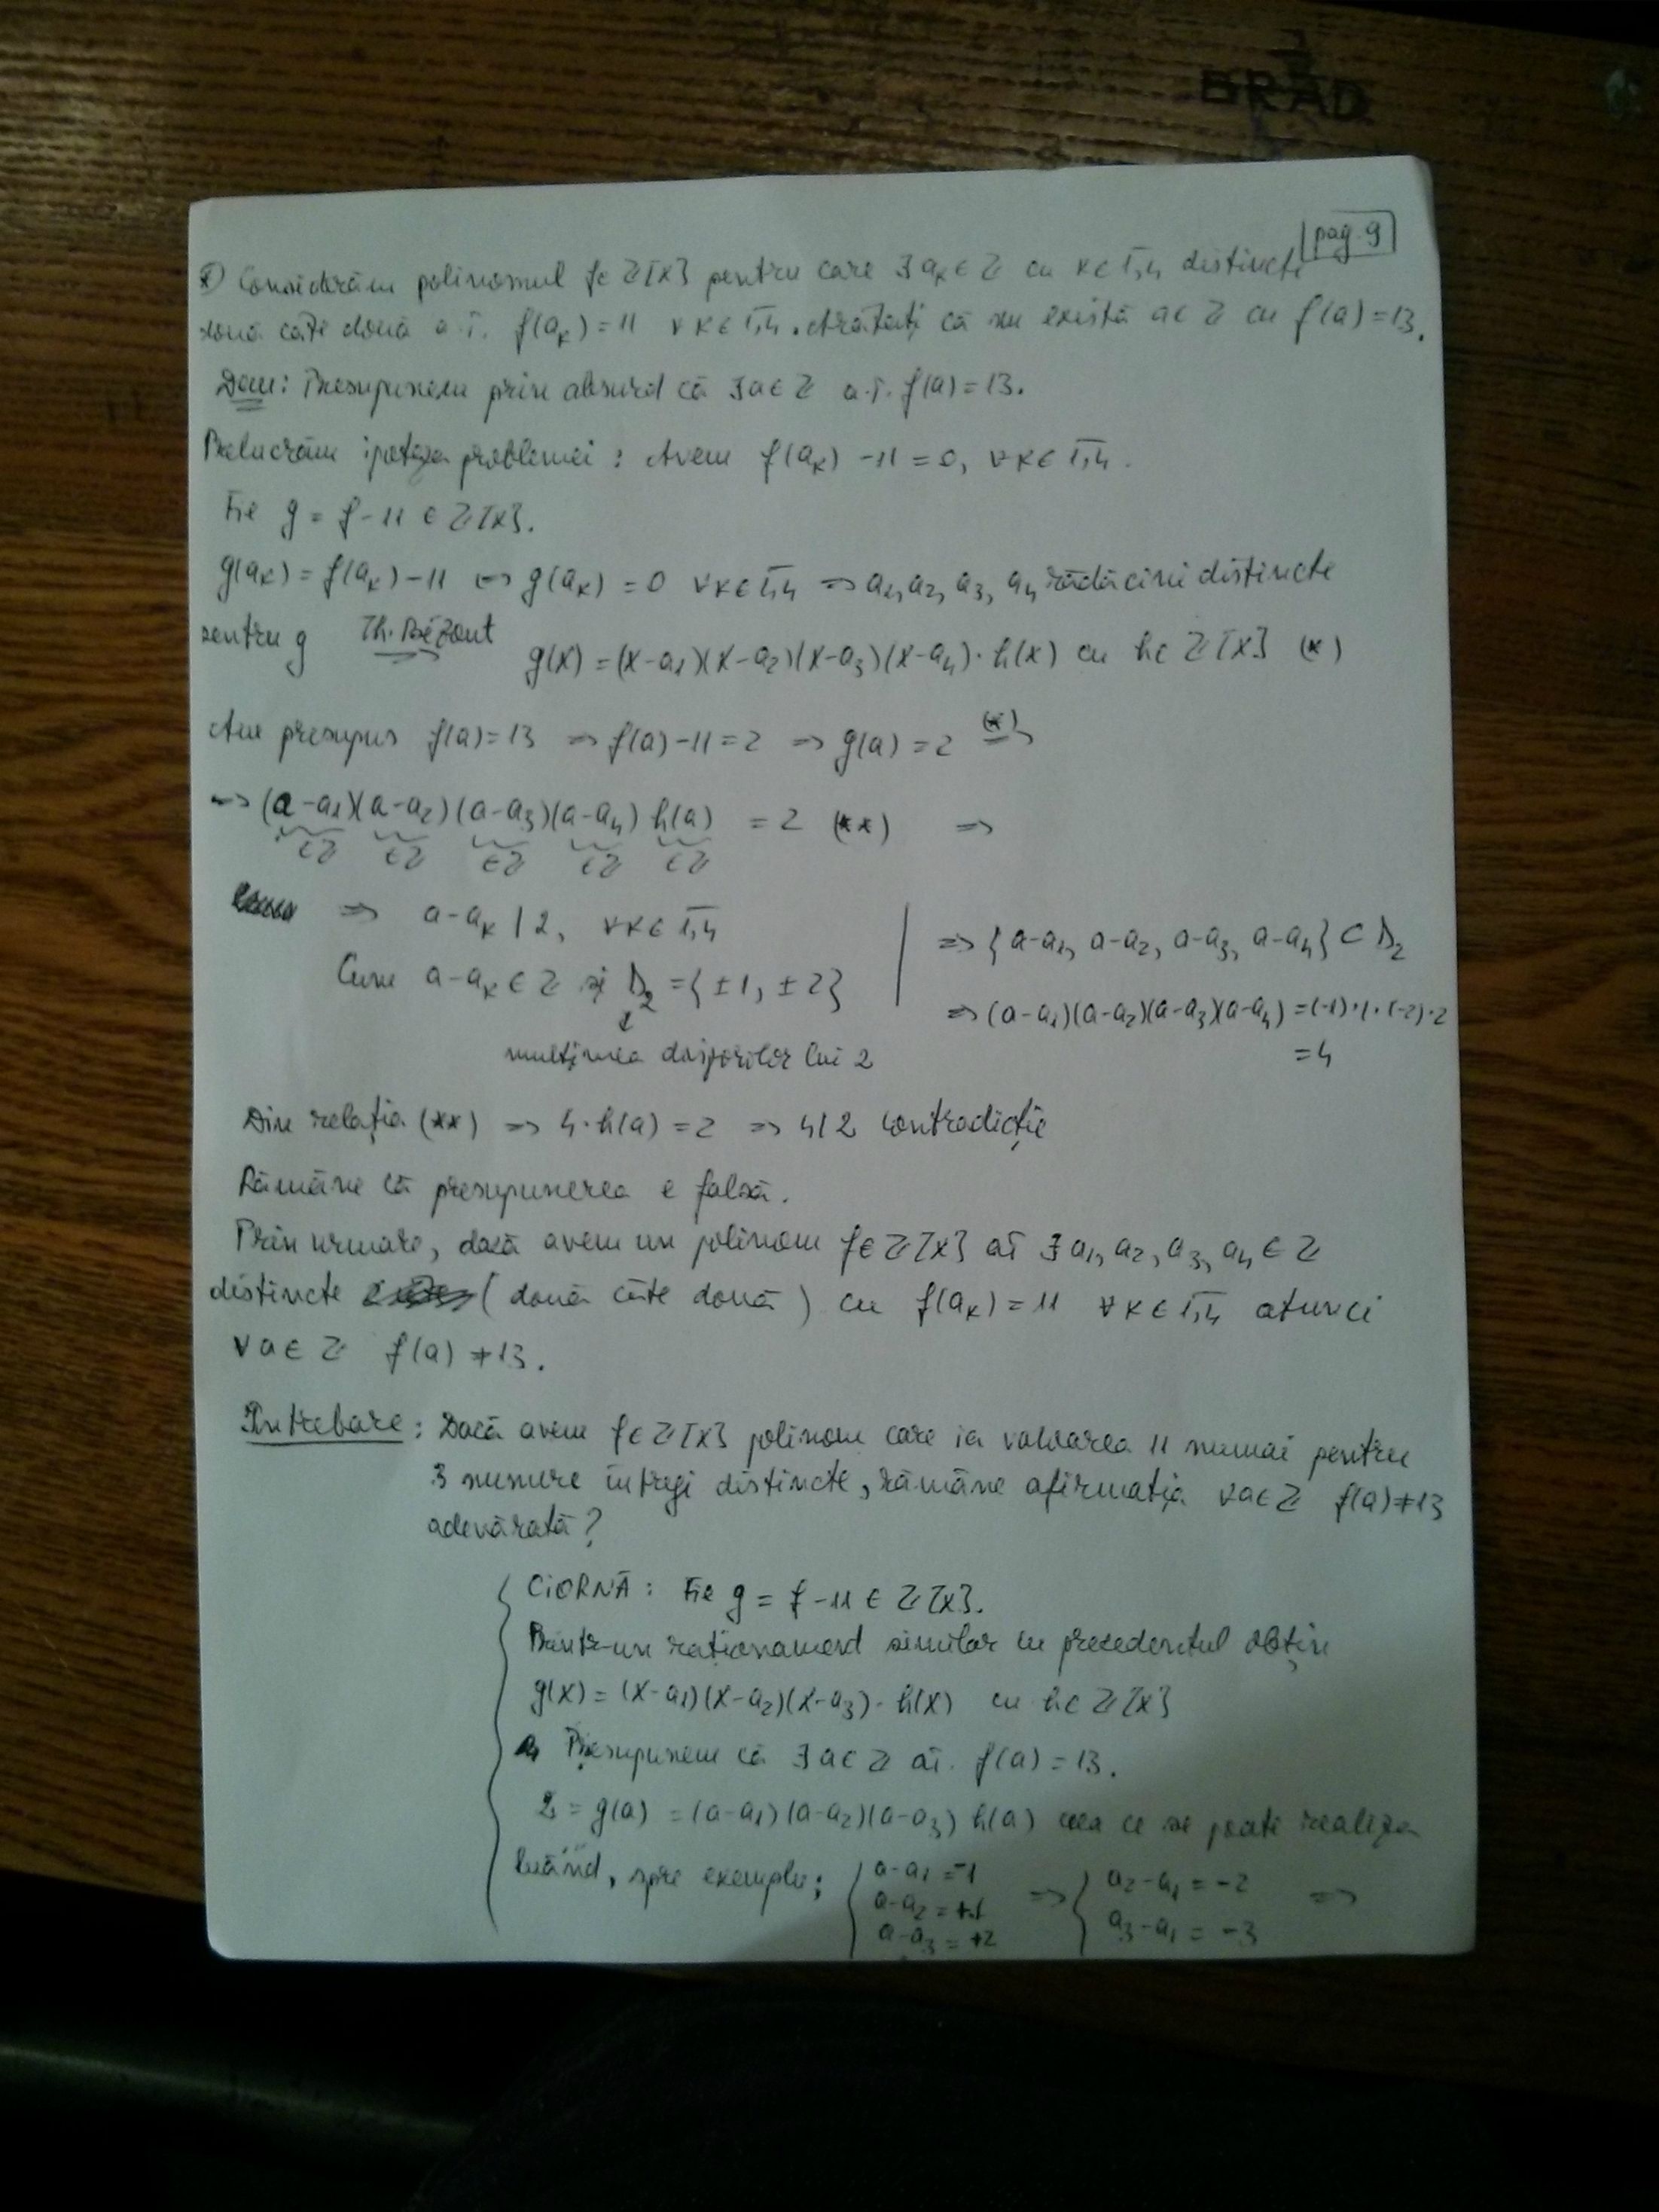 BRAD
pag. 9
Considerăm polinomul f∈ℤ[X] pentru care ∃ aₖ∈ℤ cu k∈1,4 distincte
două câte două a.î. f(aₖ) = 11 ∀k∈1,4. Arătați că nu există a∈ℤ cu f(a)=13.
Dem: Presupunem prin absurd că ∃a∈ℤ a.î. f(a)=13.
Prelucrăm ipoteza problemei: Avem f(aₖ) -11=0, ∀k∈1,4.
Fie g = f-11 ∈ ℤ[X].
g(aₖ) = f(aₖ)-11 ⇔ g(aₖ) = 0 ∀k∈1,4 ⇒ a₁, a₂, a₃, a₄ rădăcini distincte
pentru g Th. Bézout⇒ g(X) = (X-a₁)(X-a₂)(X-a₃)(X-a₄)·h(X) cu h∈ℤ[X] (*)
Am presupus f(a)=13 ⇒ f(a)-11=2 ⇒ g(a)=2 (*)⇒
⇒ (a-a₁)(a-a₂)(a-a₃)(a-a₄) h(a) = 2 (**) ⇒
∈ℤ ∈ℤ ∈ℤ ∈ℤ ∈ℤ
⇒ a-aₖ | 2, ∀k∈1,4
Cum a-aₖ∈ℤ și D₂ = {±1, ±2}
↓
mulțimea divizorilor lui 2
⇒ {a-a₁, a-a₂, a-a₃, a-a₄} ⊂ D₂
⇒ (a-a₁)(a-a₂)(a-a₃)(a-a₄) = (-1)·1·(-2)·2
= 4
Din relația (**) ⇒ 4·h(a) = 2 ⇒ 4|2 contradicție
Rămâne că presupunerea e falsă.
Prin urmare, dacă avem un polinom f∈ℤ[X] aî ∃ a₁, a₂, a₃, a₄ ∈ ℤ
distincte (două câte două) cu f(aₖ) = 11 ∀k∈1,4 atunci
∀a∈ℤ f(a) ≠ 13.
Întrebare: Dacă avem f∈ℤ[X] polinom care ia valoarea 11 numai pentru
3 numere întregi distincte, rămâne afirmația ∀a∈ℤ f(a)≠13
adevărată?
CIORNĂ: Fie g = f-11 ∈ ℤ[X].
Printr-un raționament similar cu precedentul obțin
g(X) = (X-a₁)(X-a₂)(X-a₃)·h(X) cu h∈ℤ[X]
Presupunem că ∃a∈ℤ aî. f(a) = 13.
2 = g(a) = (a-a₁)(a-a₂)(a-a₃) h(a) ceea ce se poate realiza
luând, spre exemplu; { a-a₁ = -1 ⇒ { a₂-a₁ = -2 ⇒
a-a₂ = +1
a-a₃ = +2 a₃-a₁ = -3